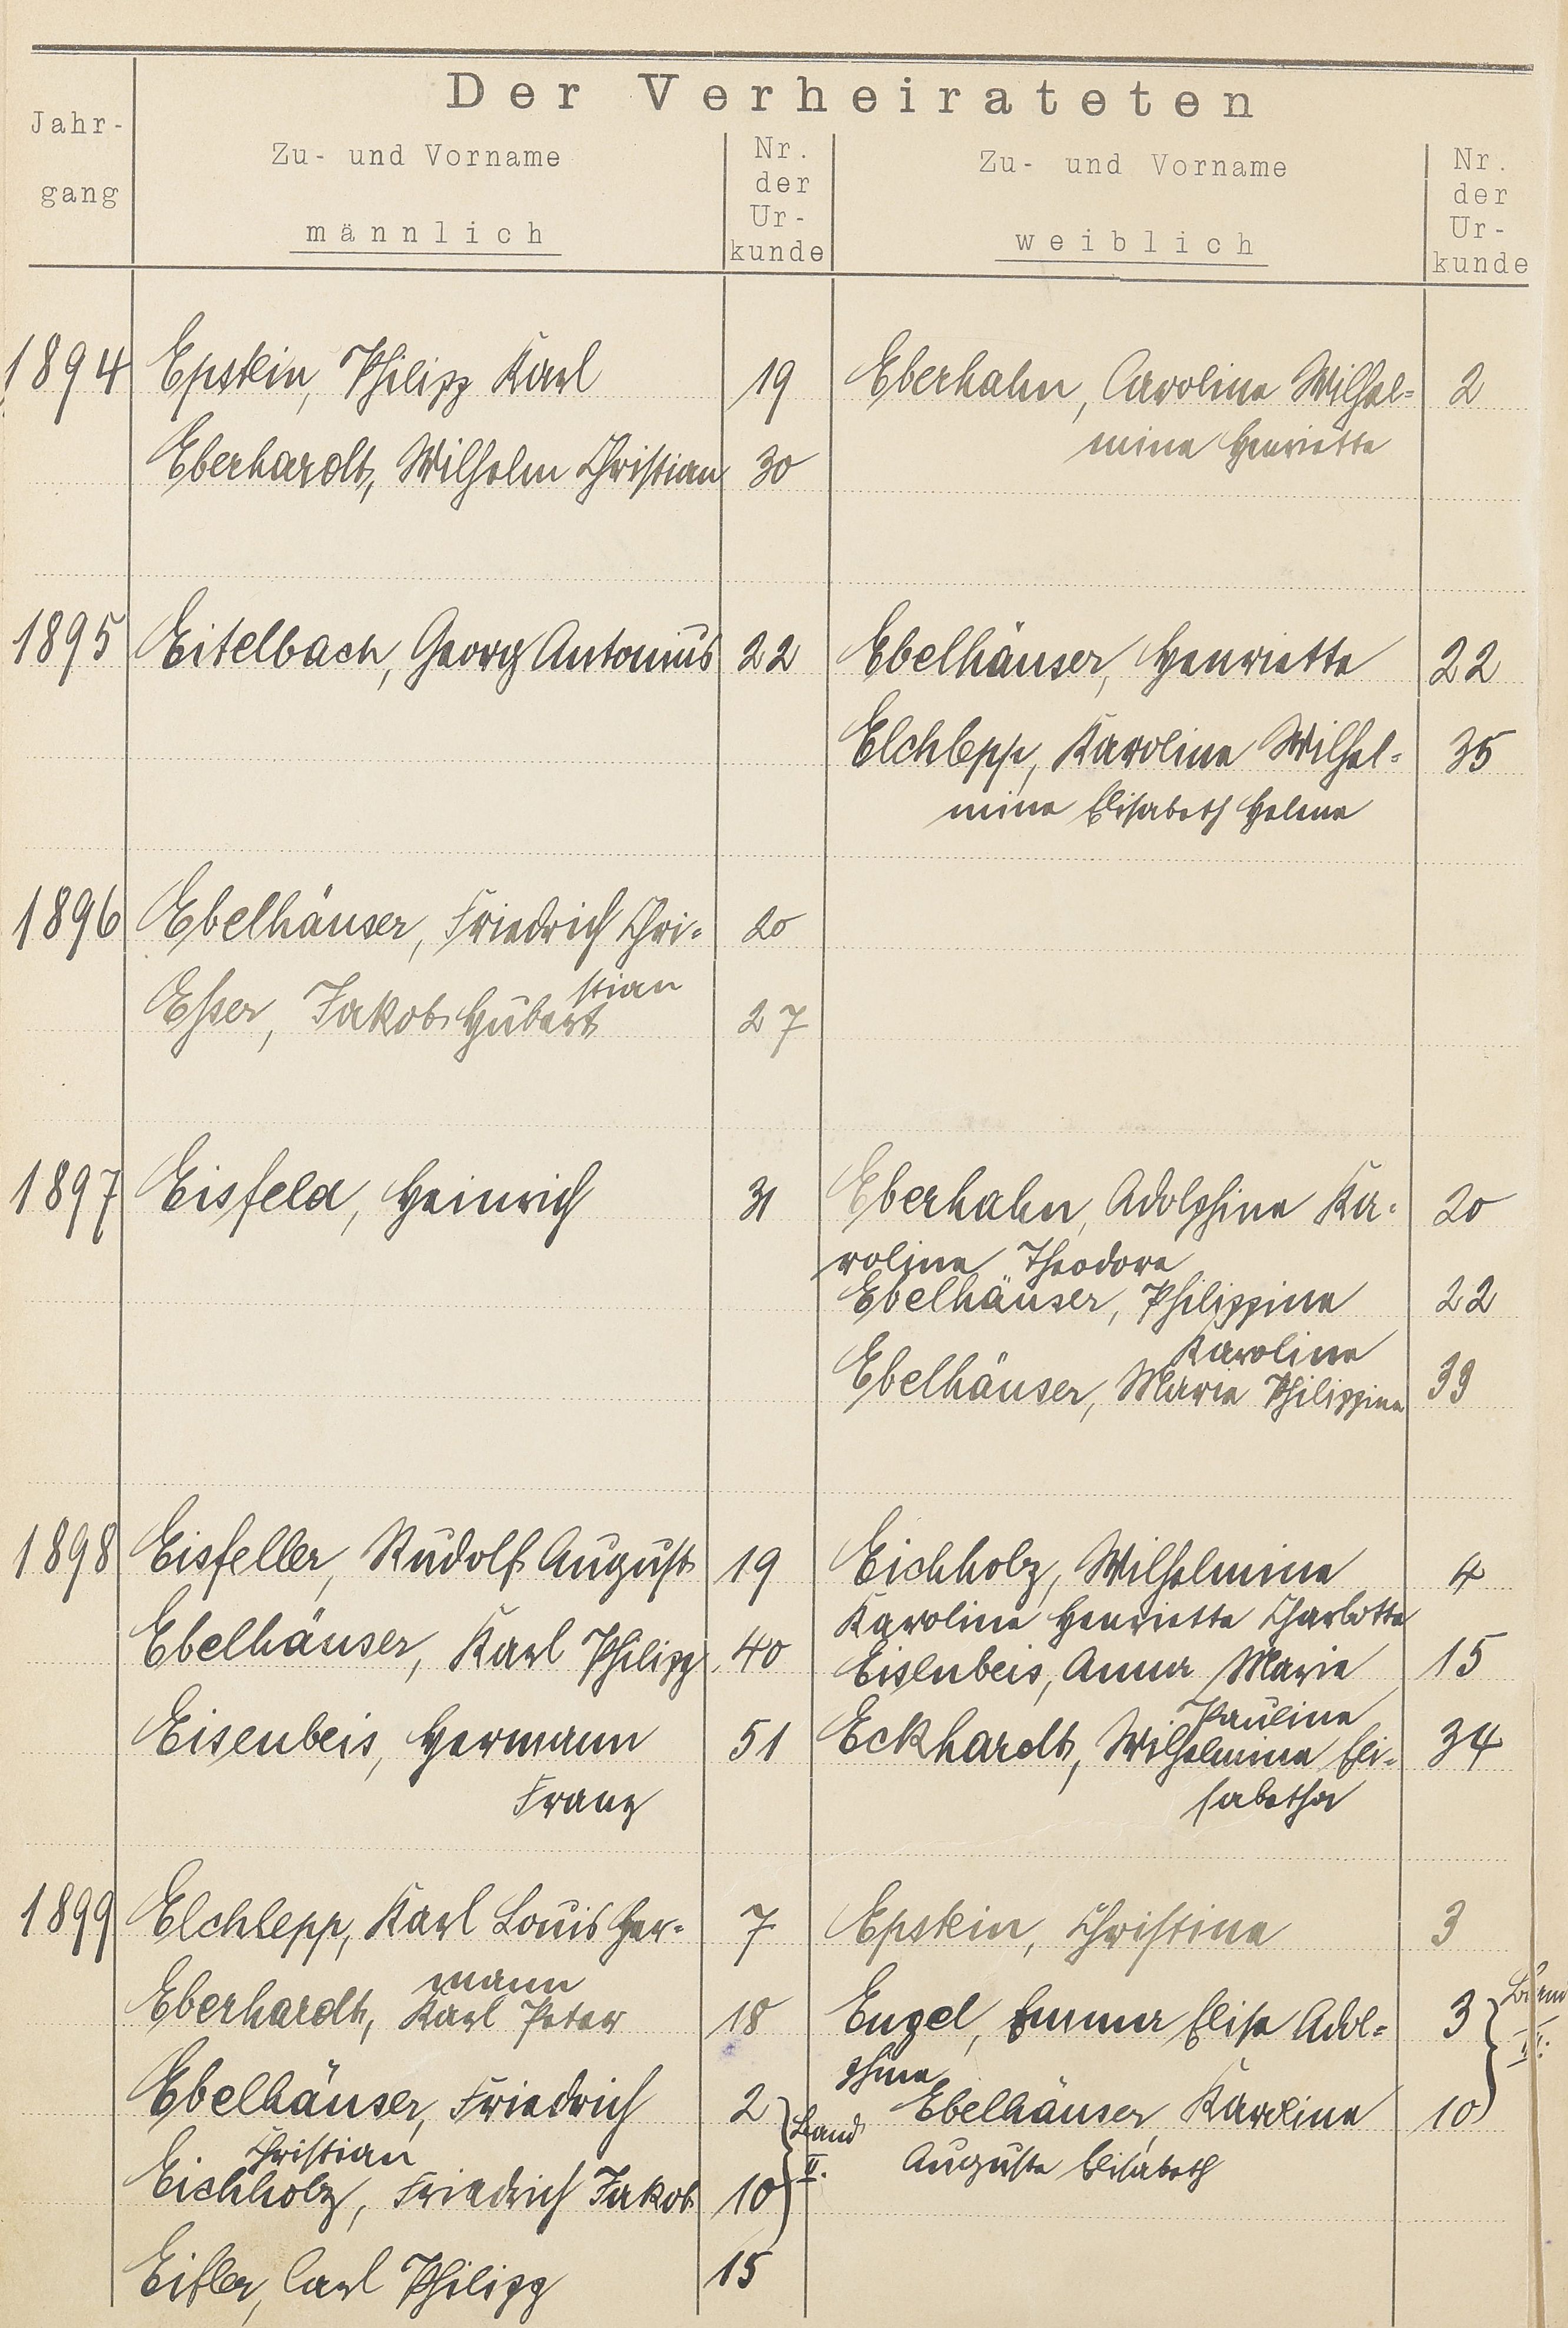 Der Verheirateten
Jahr-
gang
Zu- und Vorname
männlich
Nr.
der
Ur-
kunde
Zu- und Vorname
weiblich
Nr.
der
Ur-
kunde
1894 Epstein, Philipp Karl 19 Eberhahn, Caroline Wilhel= 2
mine Henriette
Eberhardt, Wilhelm Christian 30
1895 Eitelbach, Georg Antonius 22 Ebelhäuser, Henriette 22
Elchlepp, Karoline Wilhel= 35
mine Elisabeth Helene
1896 Ebelhäuser, Friedrich Chri= 20
stian
Esser, Jakob Hubert 27
1897 Eisfeld, Heinrich 31 Eberhahn, Adolphine Ka= 20
roline Theodore
Ebelhäuser, Philippine 22
Karoline
Ebelhäuser, Marie Philippine 39
1898 Eisfeller, Rudolf August 19 Eichholz, Wilhelmine 4
Karoline Henriette Charlotte
Ebelhäuser, Karl Philipp 40 Eisenbeis, Anna Marie 15
Pauline
Eisenbeis, Hermann 51 Eckhardt, Wilhelmine Eli= 34
Franz sabetha
1899 Elchlepp, Karl Louis Her= 7 Epstein, Christine 3
mann
Eberhardt, Karl Peter 18 Engel, Emma Elise Adol= 3 Band
II.
phine
Ebelhäuser, Friedrich 2 Band Ebelhäuser, Karoline 10
Christian II. Auguste Elisabeth
Eichholz, Friedrich Jakob 10
Eifler, Carl Philipp 15